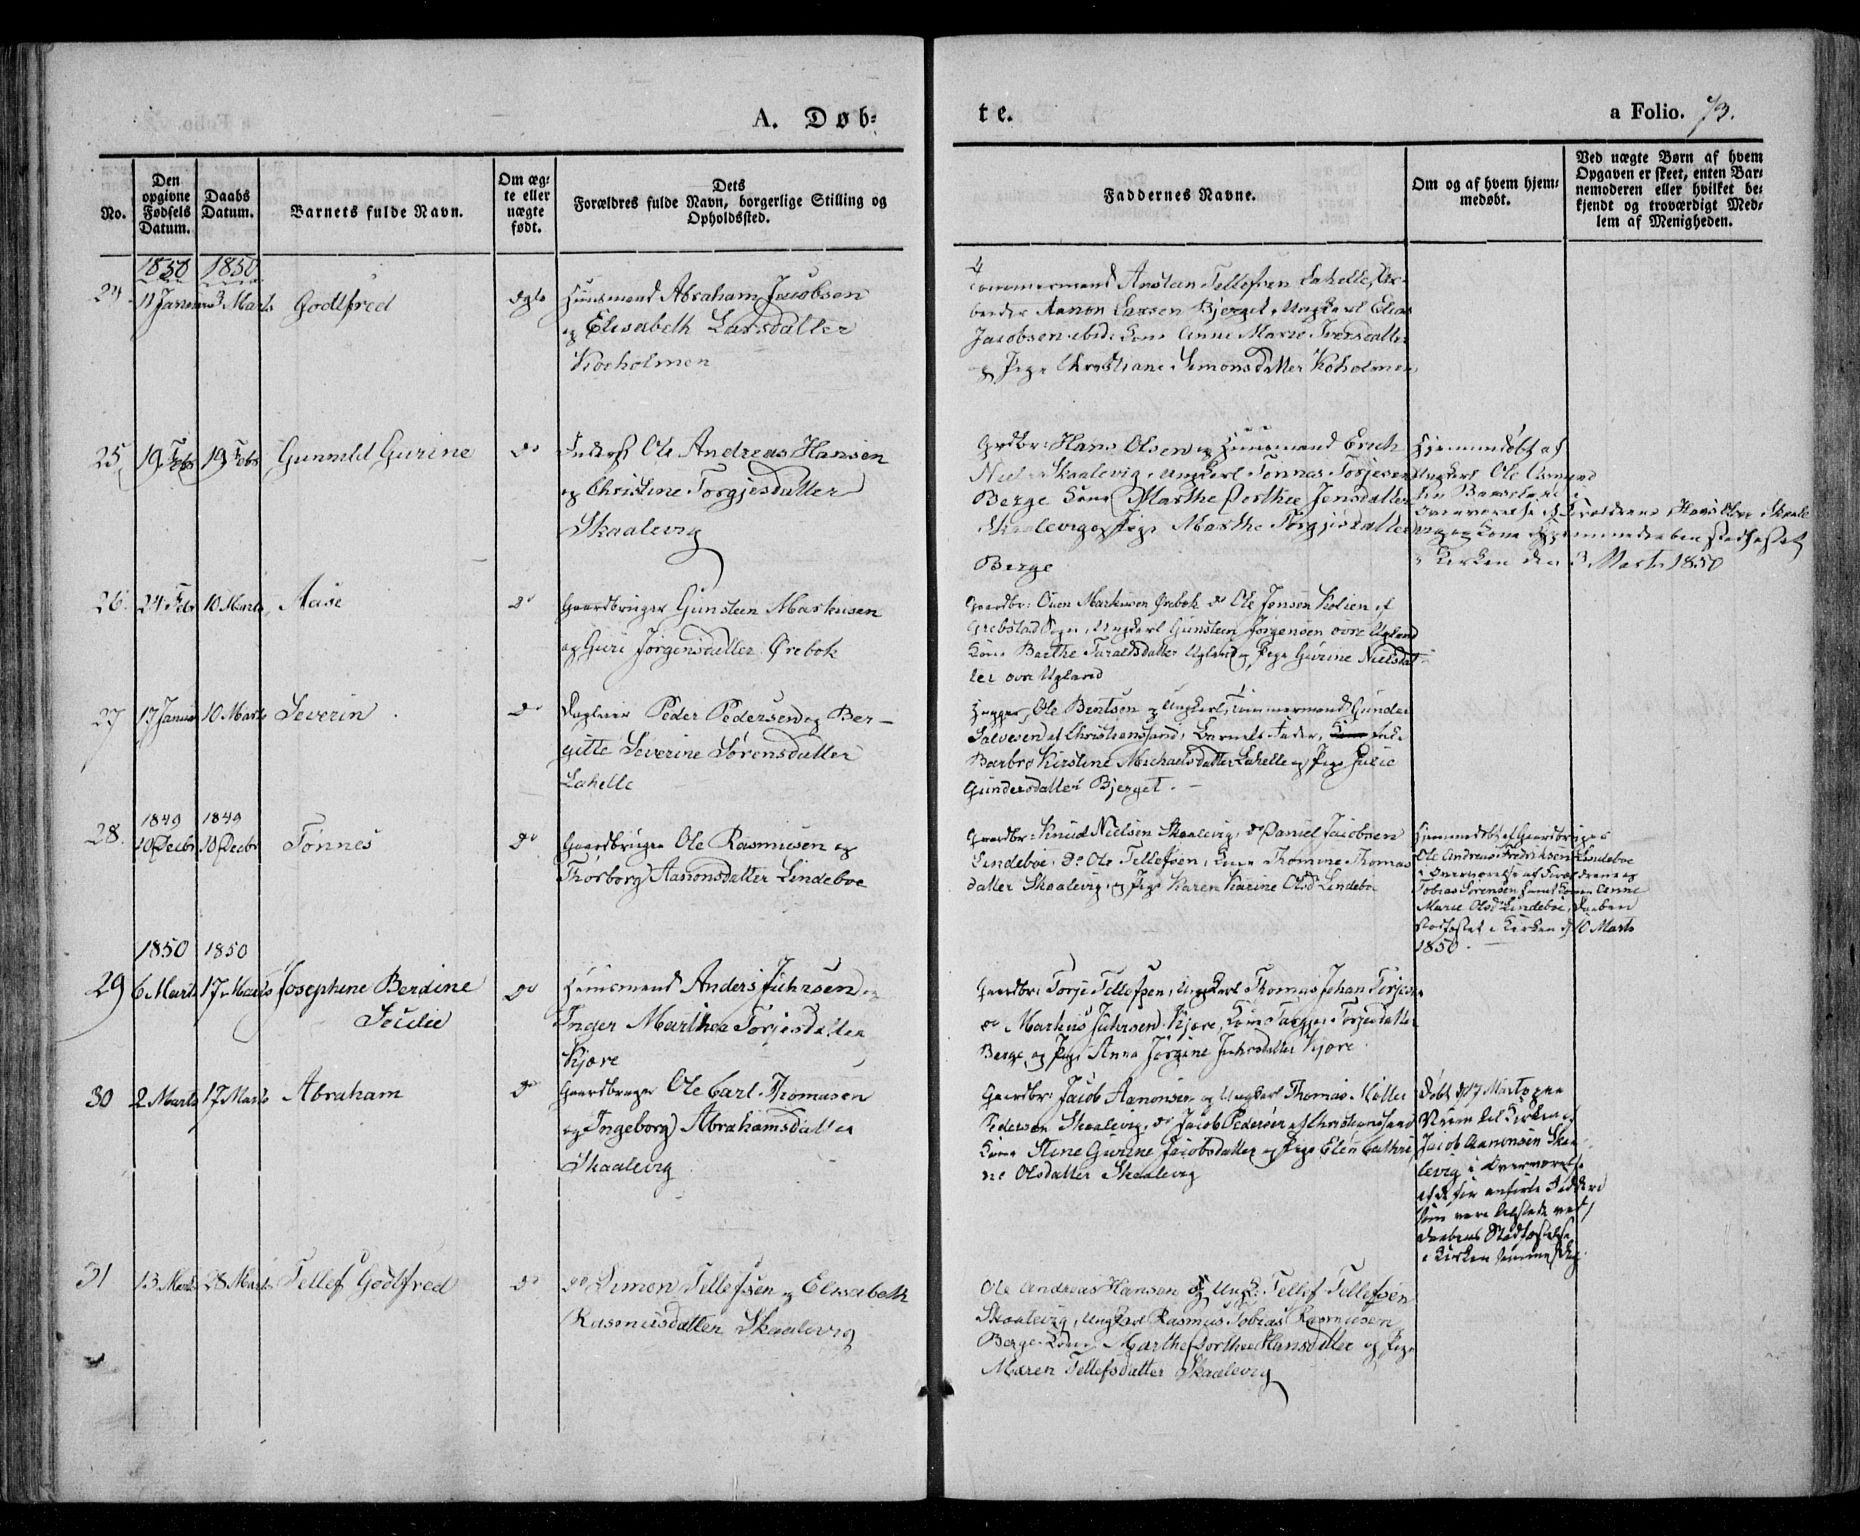 A. Døb=
te.
a Folio. 73.
No.
Den opgivne Fødsels Datum.
Daabs Datum.
Barnets fulde Navn.
Om æg=
te eller
uægte
født.
Dets
Forældres fulde Navn, borgerlige Stilling og
Opholdssted.
Faddernes Navne.
Om og af hvem hjem=
medøbt.
Ved uægte Børn af hvem
Opgaven er skeet, enten Bar=
nemoderen eller hvilket be=
kjendt og troværdigt Med=
lem af Menigheden.
1850 1850
24 11 Januar 3 Marts Godtfred ægte Huusmand Abraham Jacobsen
og Elisabeth Larsdatter
Koeholmen
Tømmermand Ansteen Tellefsen Lahelle, Ar-
beider Aanon Larsen Bjerget, Ungkarl Elias
Jacobsen ibid: Kone Anne Marie Iversdatter
og Pige Christiane Simonsdatter Koholmen
25 19 Febr 19 Febr Gunnild Gurine do Inderst Ole Andreas Hansen
og Christine Torgjesdatter
Skaalevig
Grdbr: Hans Olsen og Huusmand Erich
Niels Skaalevig, Ungkarl Tønnes Torjesen
Berge Kone Marthe Dorthee Jensdatter
Skaalevig og Pige Marthe Torgjesdatter
Berge
Hjemmedøbt af
Ungkarl Ole
i
Overværelse af Forældrene, Hans Olsen Skaale
vig og Kone Hjemmedaaben stadfæstet
i Kirken den 3 Marts 1850
26 24 Febr 10 Marts Aase do Gaardbruger Gunsteen Markusen
og Guri Jørgensdatter Ørebok
Gaardbr: Ouen Markusen Ørebok do Ole Jensen Kolien af
Grebstad Sogn, Ungkarl Gunsteen Jørgensen øvre Ugland
Kone Barthe Taraldsdatter Ugland og Pige Gurine Nielsdat-
ter øvre Ugland
27 17 Januar 10 Marts Severin do Peder Pedersen og Ber-
gitte Severine Sørensdatter
Lahelle
Ole Bentsen og Ungkarl, Tømmermand Gunder
Salvesen af Christianssand, Barnets Fader,
Barbro Kirstine Michaelsdatter Lahelle og Pige Julie
Gundersdatter Bjerget. -
1849 1849
28. 10 Decbr 10 Decbr Tønnes do Gaardbruger Ole Rasmusen og
Thorborg Aanonsdatter Lindeboe
Gaardbr: Knud Nielsen Skaalevig, do Daniel Jacobsen
Lindeboe, do Ole Tellefsen, Kone Thomine Thomas
datter Skaalevig, og Pige Karen Karine Olsd Lindeboe
Hjemmedøbt af Gaardbruger
Ole Andreas Fredriksen Lindeboe
i Overværelse af Forældrene og
Tobias Sørensen samt Kone Anne
Marie Olsd Lindeboe, Daaben
stadfæstet i Kirken d 10 Marts
1850.
1850 1850
29 6 Marts 17 Marts Josephine Berdine
Secilie
do Huusmand Anders Juhrsen og
Inger Marthea Torjesdatter
Kjære
Gaardbr: Torje Tellefsen, Ungkarl Thomas Johan Torjes
do Markus Juhrsen Kjære, Kone Torjesdatter
Berge og Pige Anna Jørgine Juhrsdatter Kjære.
30 2 Marts 17 Marts Abraham do Gaardbruger Ole Carl Thomasen
og Ingeborg Abrahamsdatter
Skaalevig
Gaardbr: Jacob Aanonsen og Ungkarl Thomas Møller
Pedersen Skaalevig, do Jacob Pedersen af Christianssand
Kone Stine Gurine Jacobsdatter og Pige Elen Cathri
ne Olsdatter Skaalevig
Døbt d 17 Marts paa
Veien til Kirken af
Jacob Aanonsen Skaa-
levig i Overværelse
af de før anførte Faddere
som vare tilstede ved
Daabens Stadfæstelse
i Kirken samme Dag
31 13 Marts 28 Marts Tellef Godtfred do do Simon Tellefsen og Elisabeth
Rasmusdatter Skaalevig
Ole Andreas Hansen og Ungk: Tellef Tellefsen
Skaalevig, Ungkarl Rasmus Tobias Rasmusen
Berge Kone Marthe Dorthea Hansdatter og Pige
Maren Tellefsdatter Skaalevig